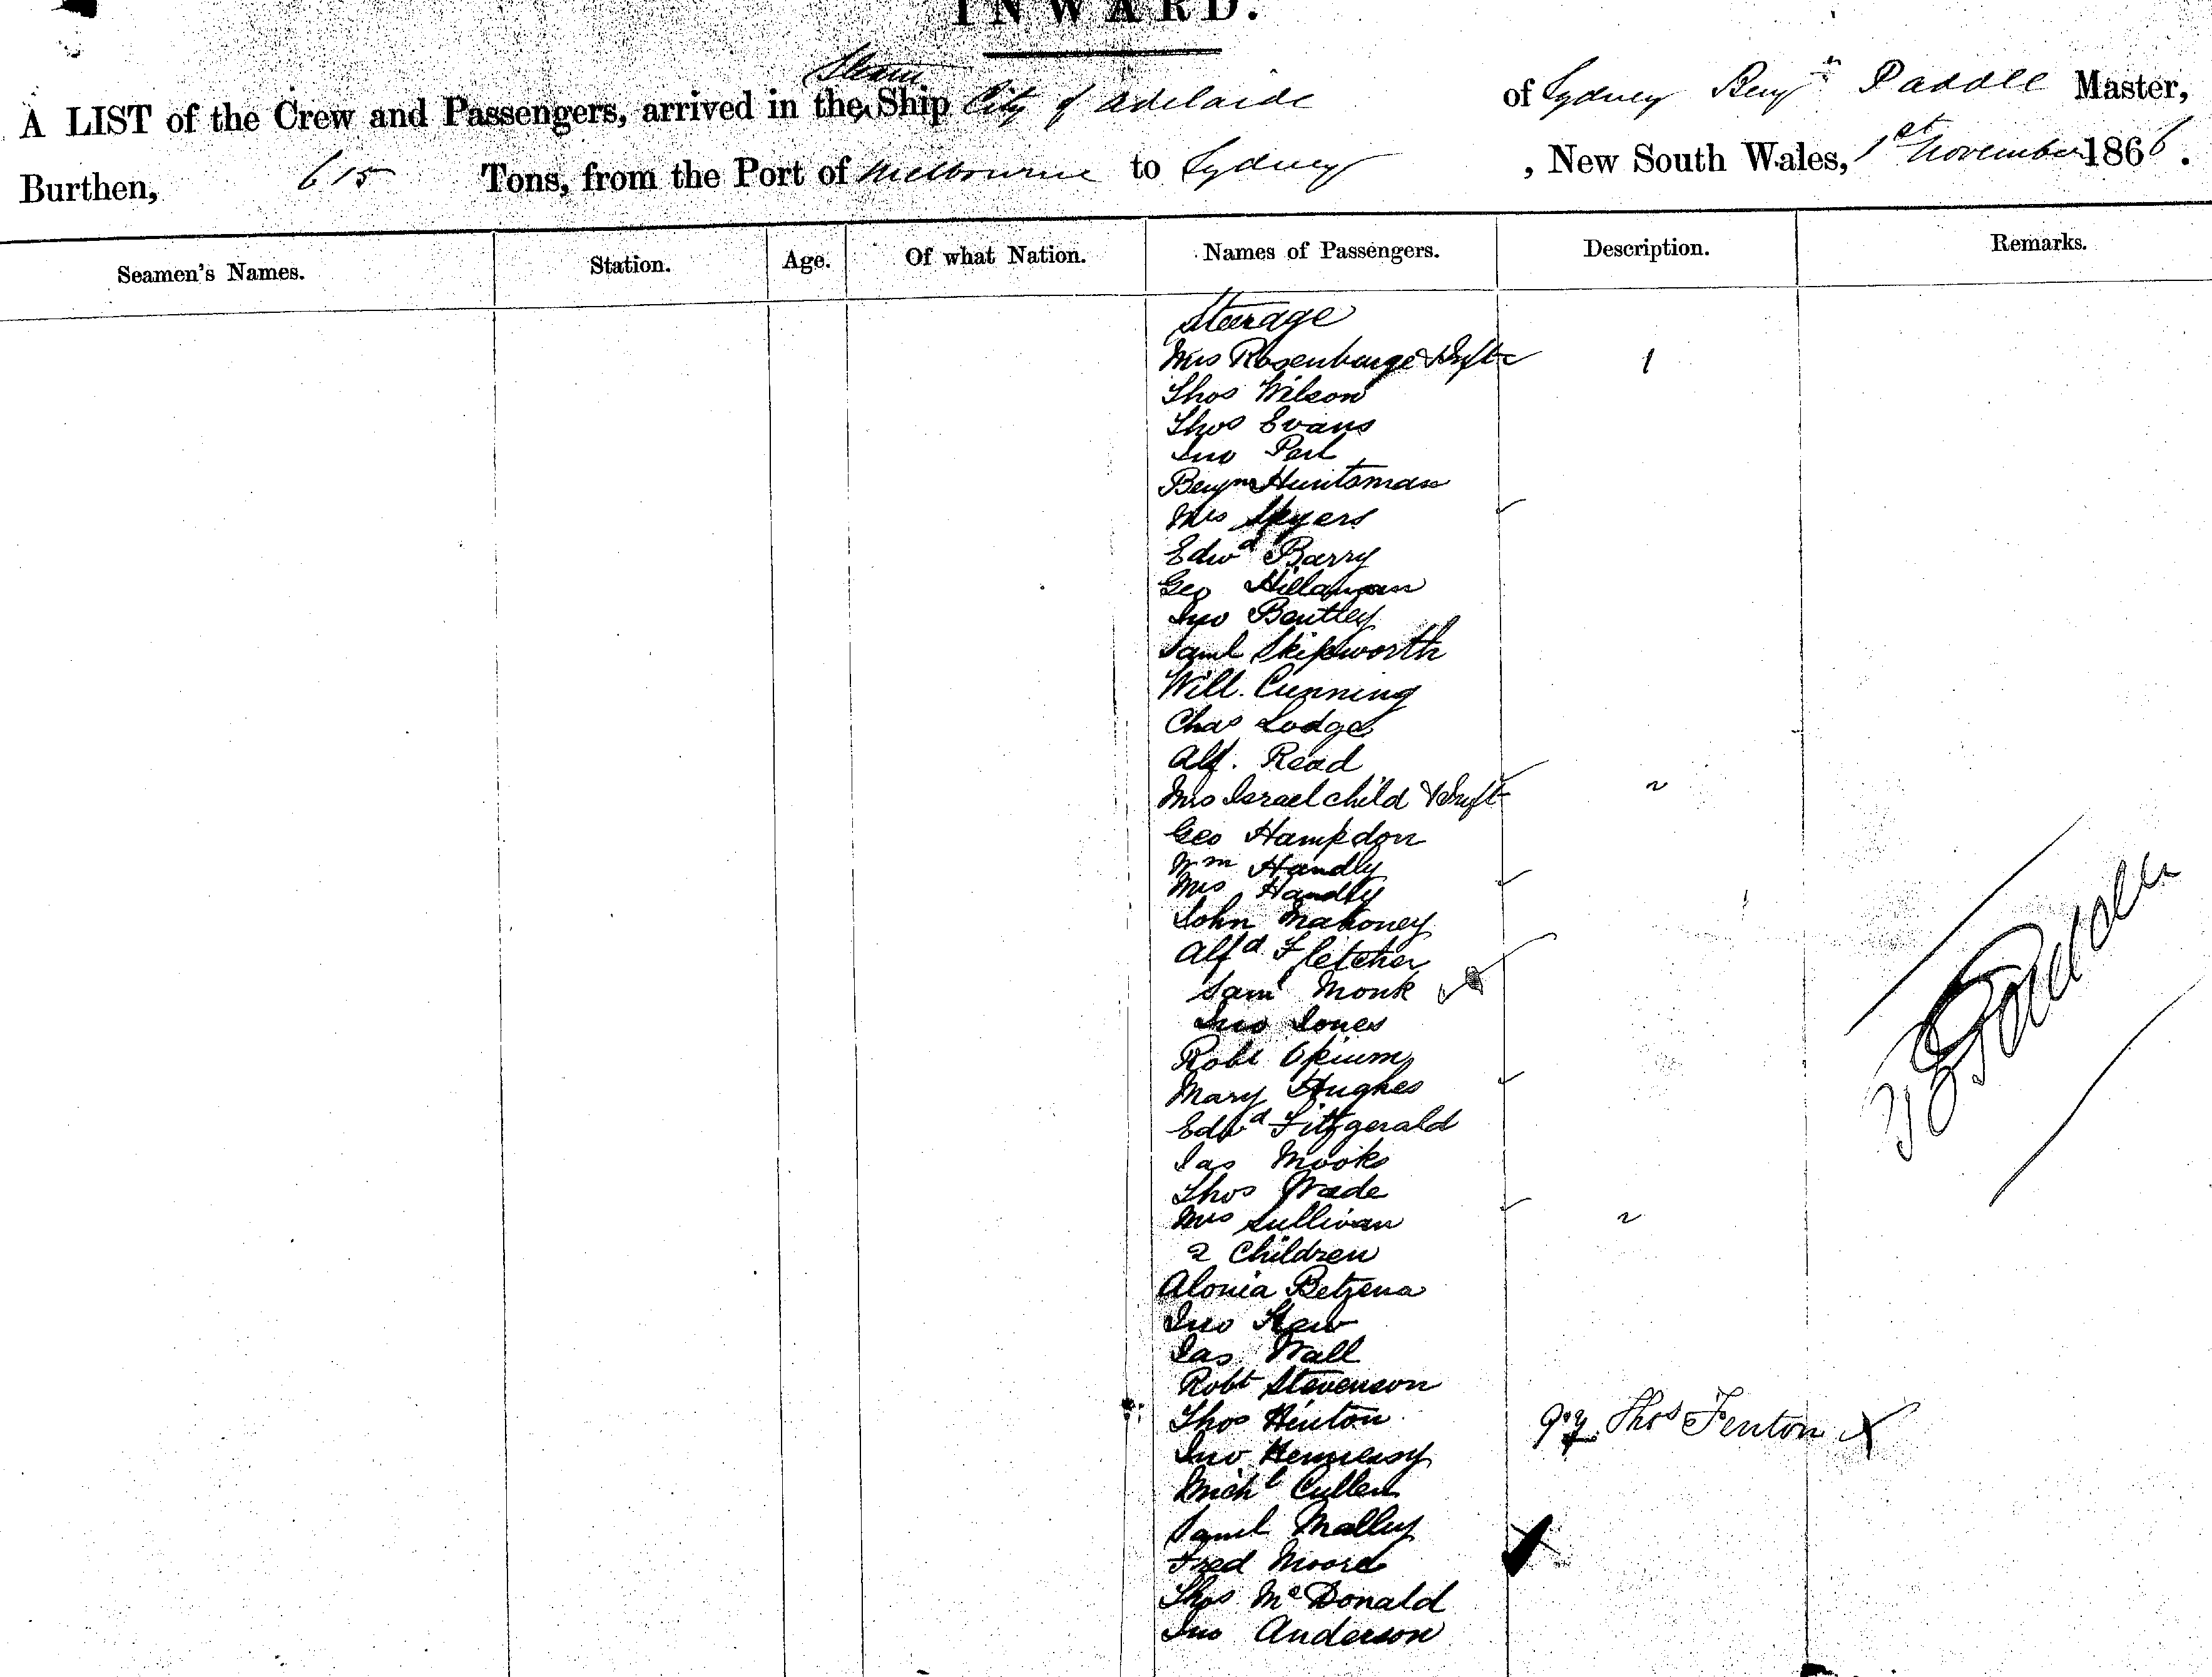 INWARD.
Steam
A LIST of the Crew and Passengers, arrived in the Ship City of Adelaide of Sydney Benjn Paddle Master,
Burthen, 615 Tons, from the Port of Melbourne to Sydney , New South Wales, 1st November 1866.
Seamen's Names. Station. Age. Of what Nation. Names of Passengers. Description. Remarks.
Steerage
Mrs Rosenburge & Inft 1
Thos Wilson
Thos Evans
Jno Perl
Benjn Huntsman
Mrs Spyers
Edwd Barry
Geo
Jno Bentley
Saml Skipworth
Will. Cunning
Chas Lodge
Alf. Read
Mrs Israel child & Inft 2
Geo Hampdon
Wm Handly
Mrs Handly
John Mahoney
Alfd Fletcher
Saml Monk
Jno Jones
Robt Opium
Mary Hughes
Edwd Fitzgerald
Jas Mooks
Thos Wade
Mrs Sullivan 2
2 Children
Alonia Betzena
Jno Shaw
Jas Wall
Robt Stevenson
Thos Hinton Thos Fenton X
Jno Hennessy
Michl Cullen
Saml Malley
Fred Moore
Thos McDonald
Jno Anderson
B Paddle